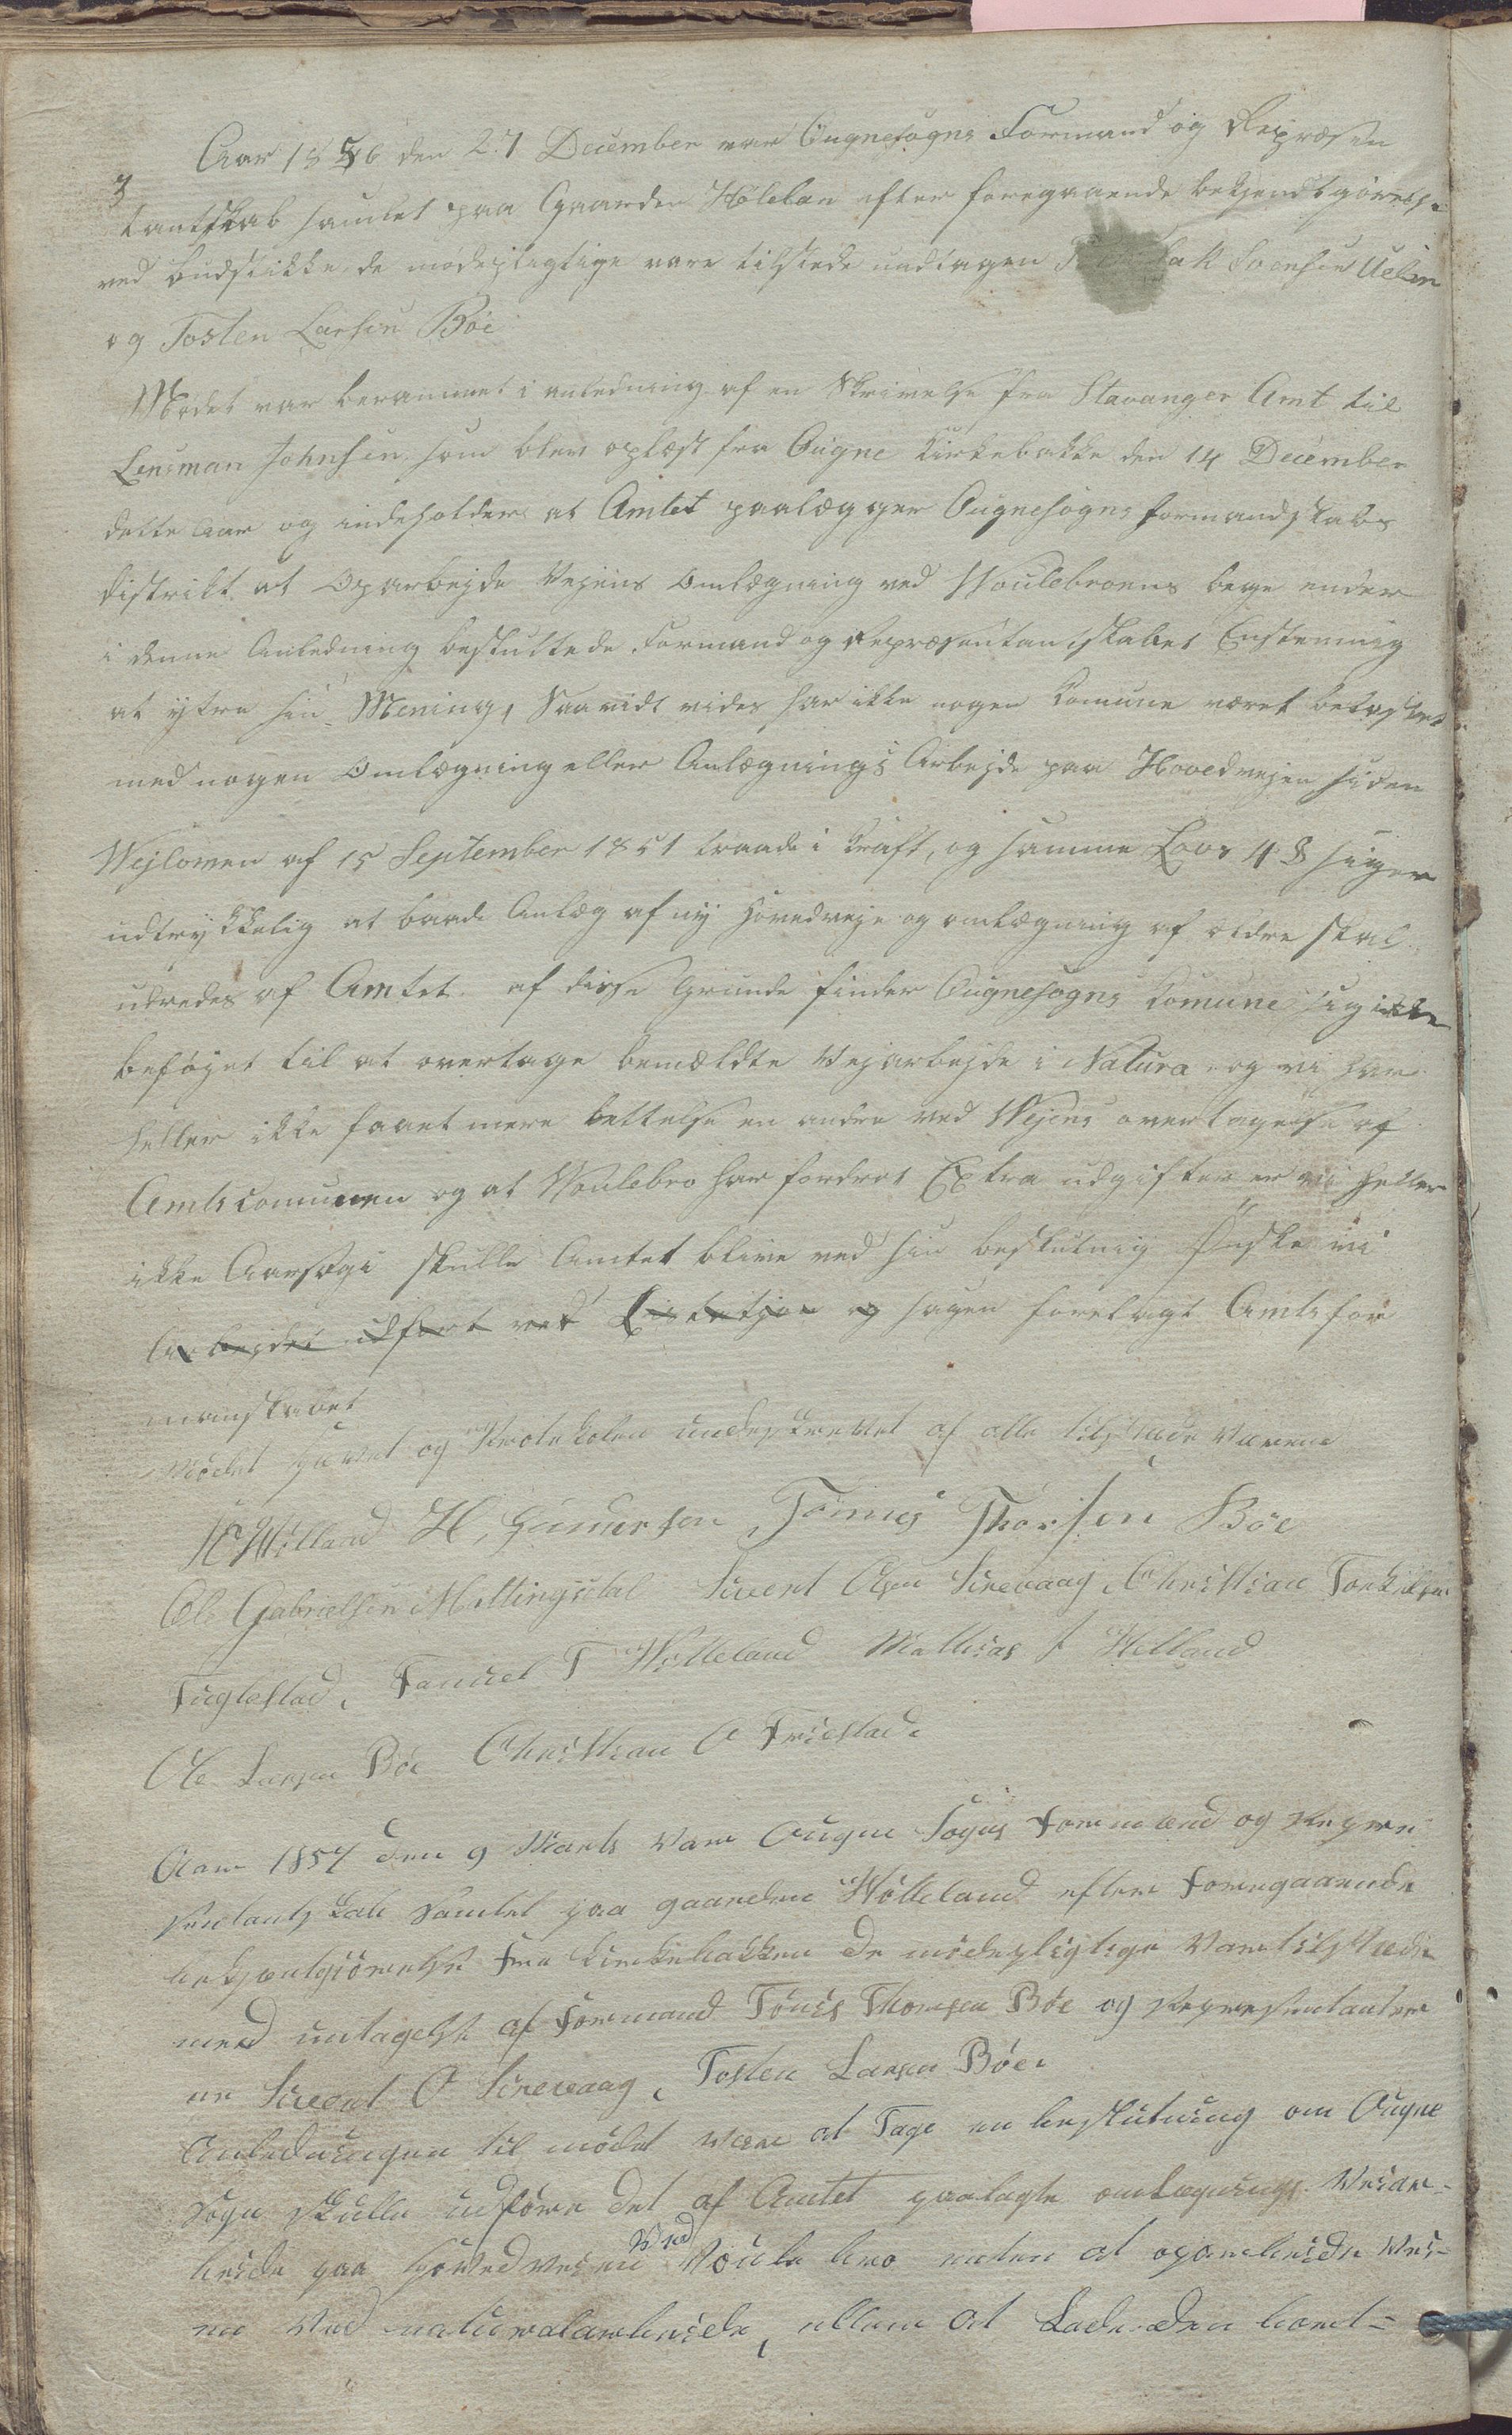 Aar 1856 den 27 December var Ougnesogns Formand og Repræsen
3
tantskab samlet paa Gaarden Høleland efter foregaaende bekjendtgørelse
ved budstikke de mødepligtige vare tilstede undtagen Svensen Uelan
og Tosten Larsen Böe
Mødet var berammet i anledning af en Skrivelse fra Stavanger Amt til
Lensman Johnsen som blev oplæst fra Ougne Kirkebakke den 14 December
dette Aar og indeholder at Amtet paalægger Ougnesogns formandskabs
distrikt at Oparbejde Vejens Omlægning ved Woulebroens bege ender
i denne Anledning besluttede Formand og Repræsentantskabet Enstemig
at ytre sin Mening, Saavidt vides har ikke nogen Comune været belastet
med nogen Omlægning eller Anlægnings Arbejde paa Hovedvejen siden
Wejloven af 15 September 1851 traade i Kraft, og samme Lovs 4 § siger
udtrykkelig at baade Anlæg af ny Hovedveje og omlægning af ældre skal
udredes af Amtet. af disse Grunde finder Ougnesogns Comune sig ikke
beføjet til at overtage bemældte Vejarbejde i Natura og vi har
heller ikke faaet mere lettelse en andre ved Wejens overtagelse af
Amtscomunen og at Woulebro har fordret Extra udgifter er vi heller
ikke Aarsag i skulle Amtet blive ved sin beslutning Ønske vi
Arbejdet udført ved og sagen forelagt Amtsfor
manskabet
Mødet hævet og Protokolen underskrevet af alle tilstæde Værene
H. Gunnersen Tönnes Thorsen Böe
Ole Gabrielsen Mattingsdal Sivert Osen Sirevaag, Christian Torkelsen
Fuglestad, Samuel T Hölleland Mathias J Helland
Ole Larsen Böe Christian O Frøstad.
Aar 1857 den 9 Marts Var Ougne Sogns Formænd og Repre
sentantskab Samlet paa gaarden Hölleland efter Foregaaende
bekjentgiörelse fra Kirkebakken De mödepligtige Var tilstæde
med untagelse af Formand Tönes Thorsen Böe og Representanter
ne Sivert O Sirevaag, Tosten Larsen Böe.
Anledningen til mödet Var at Tage en beslutning om Ougne
Sogn skulle udföre det af Amtet paalagte omlægnings Veiar-
beide paa Hovedveien Ved Voule bro enten at oparbeide Vei-
en Ved naturalarbeide, ellere at Lade den bort-